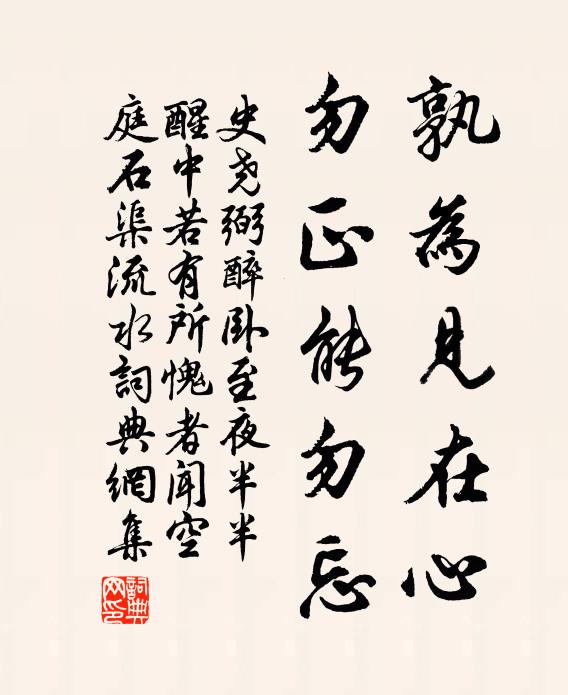 孰為見在心
勿正能勿忘
史尧弼醉卧至夜半半
醒中若有所愧者闻空
庭石渠流水詞典網集
詞典
网印